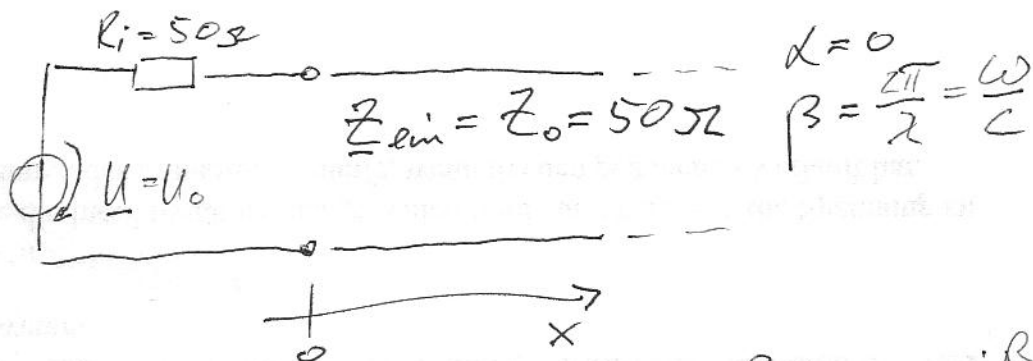 Ri = 50Ω
α = 0
Zein = Z0 = 50Ω
β = 2π/λ = ω/c
U = U0
x
0